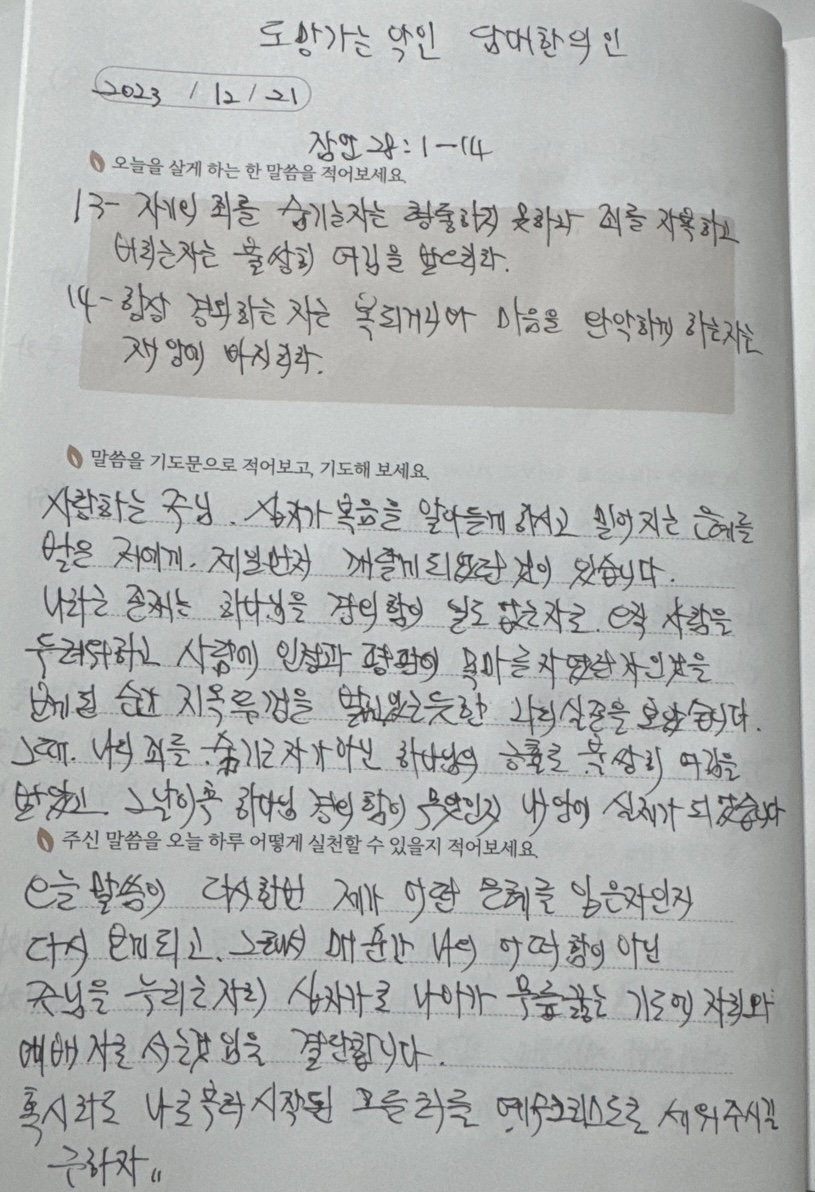 도망가는 악인 담대한 의인
2023 / 12 / 21
잠언 28:1-14
오늘을 살게 하는 한 말씀을 적어보세요.
13- 자기의 죄를 숨기는자는 형통하지 못하나 죄를 자복하고
버리는자는 불쌍히 여김을 받으리라.
14- 항상 경외하는 자는 복되거니와 마음을 완악하게 하는자는
재앙에 빠지리라.
말씀을 기도문으로 적어보고, 기도해 보세요.
사랑하는 주님. 십자가 복음을 알아듣게 하시고 믿어지는 은혜를
받은 저에게. 제일먼저 깨닫게 되었던 것이 있습니다.
나라는 존재는 하나님을 경외함이 일도 없는자로. 오직 사람을
두려워하고 사람에 인정과 평판에 목마른자였던 자인것을
보게된 순간 지옥 형벌을 받고있는듯한 나의실존을 보았습니다.
그때. 나의 죄를 숨기는 자가 아닌 하나님의 긍휼로 불쌍히 여김을
받았고. 그날이후 하나님 경외함이 무엇인지 내안에 실제가 되었습니다
주신 말씀을 오늘 하루 어떻게 실천할 수 있을지 적어보세요.
오늘 말씀이 다시한번 제가 어떤 은혜를 입은자인지
다시 보게되고. 그래서 매순간 나의 어떠함이 아닌
주님을 누리는자리 십자가로 나아가 무릎꿇는 기도의 자리와
예배 자로 서는것임을 결단합니다.
혹시라도 나로부터 시작된 모든 죄를 예수그리스도로 세워주시길
구하자.